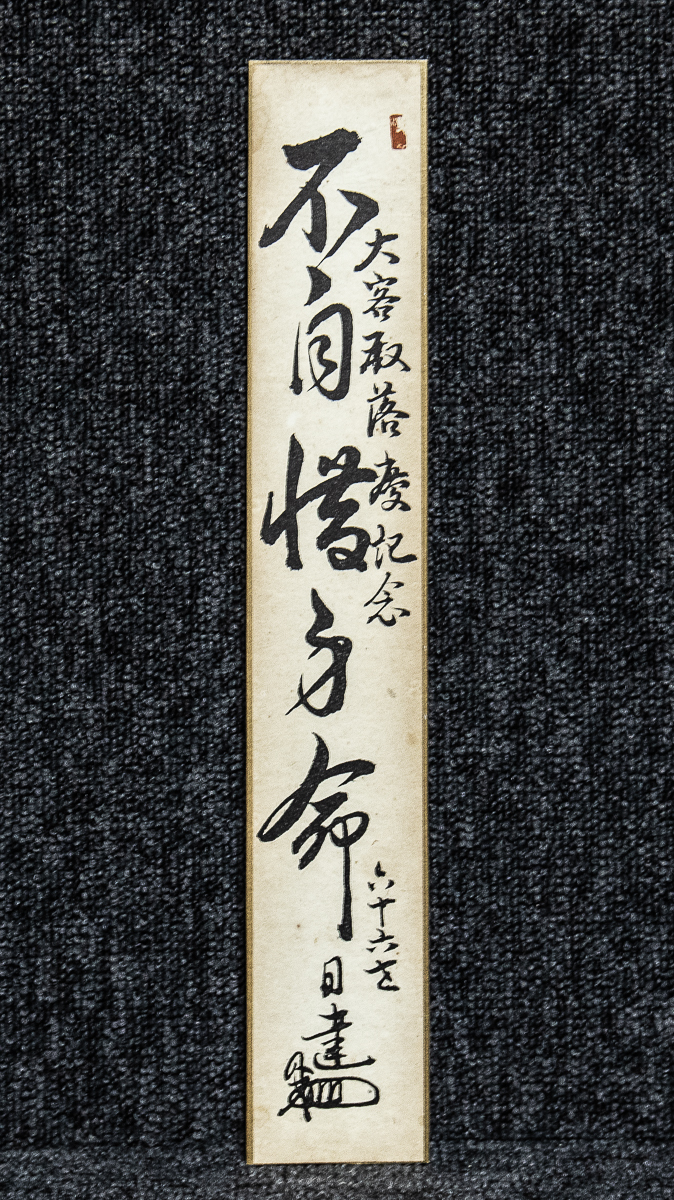 大客殿落慶記念
不自惜身命
六十六世
日達